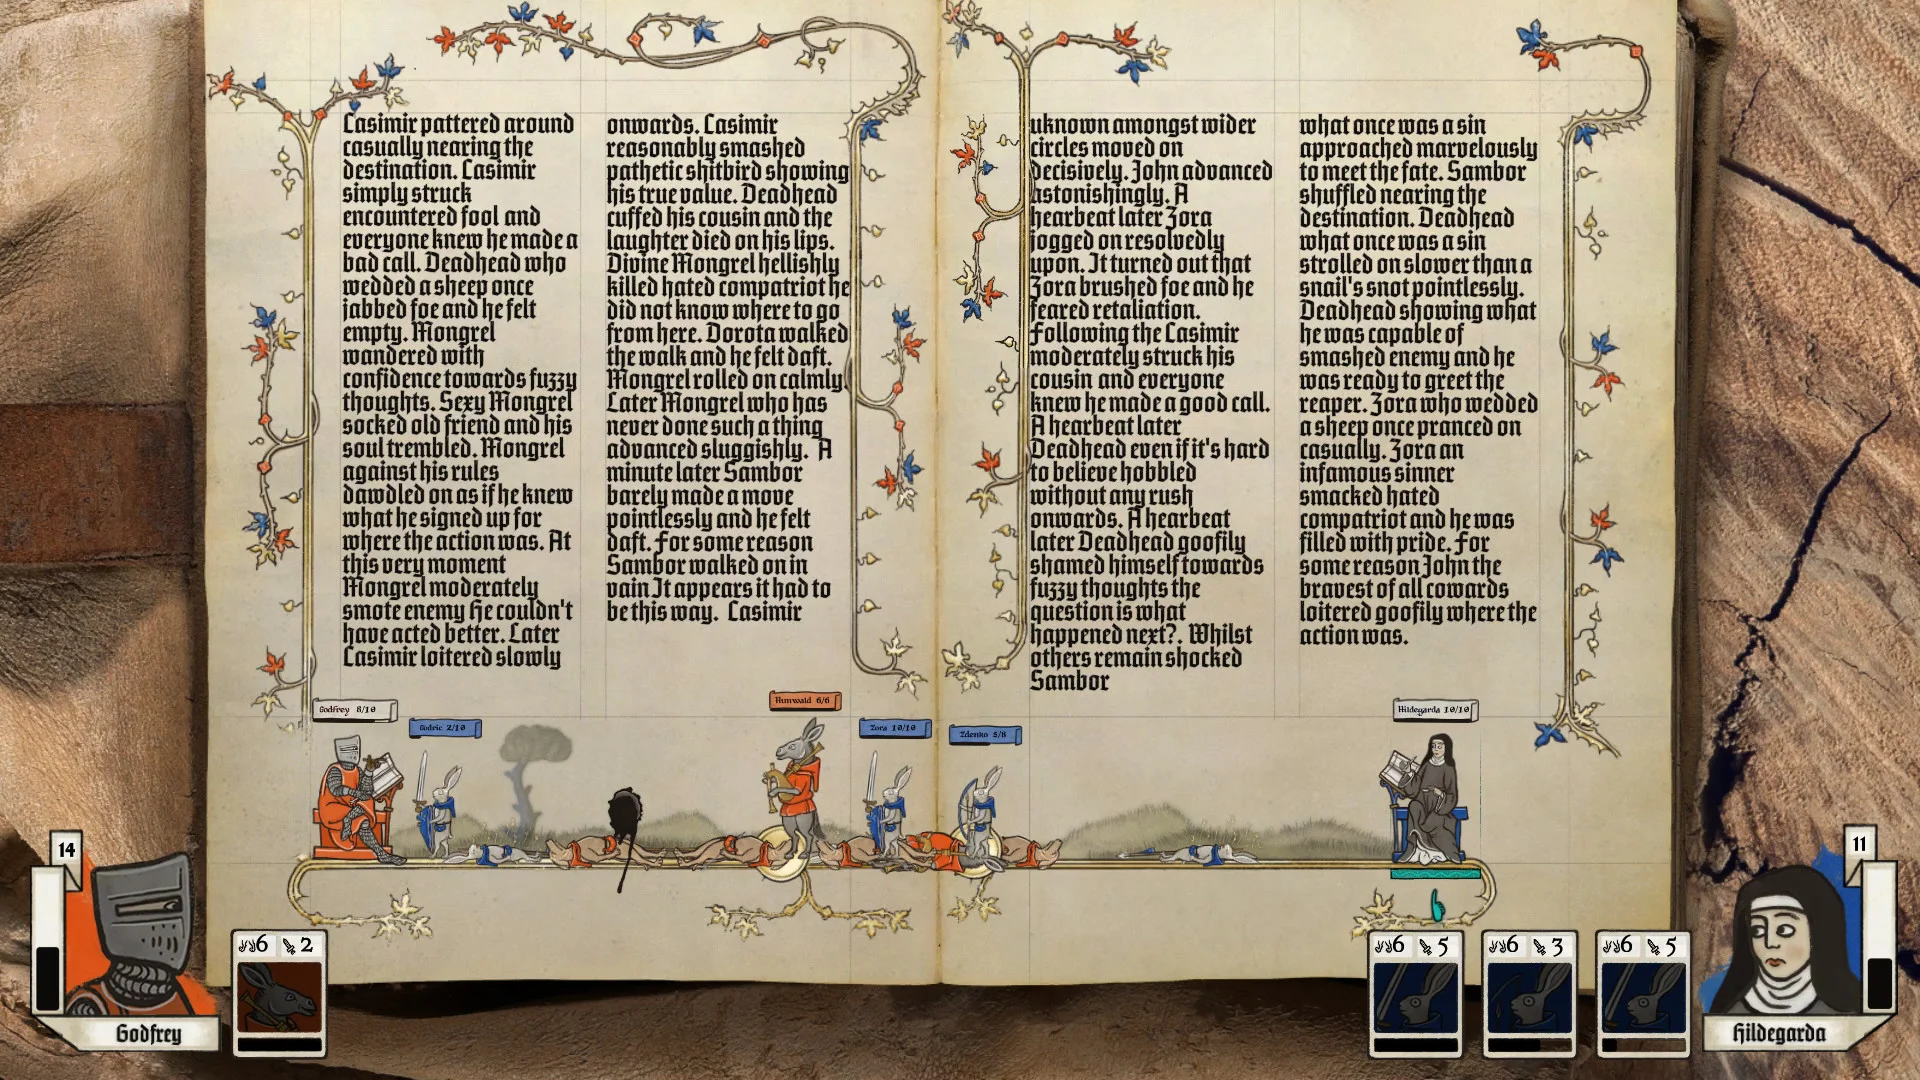 Casimir pattered around
casually nearing the
destination. Casimir
simply struck
encountered fool and
everyone knew he made a
bad call. Deadhead who
wedded a sheep once
jabbed foe and he felt
empty. Mongrel
wandered with
confidence towards fuzzy
thoughts. Sexy Mongrel
socked old friend and his
soul trembled. Mongrel
against his rules
dawdled on as if he knew
what he signed up for
where the action was. At
this very moment
Mongrel moderately
smote enemy He couldn't
have acted better. Later
Casimir loitered slowly
onwards. Casimir
reasonably smashed
pathetic shitbird showing
his true value. Deadhead
cuffed his cousin and the
laughter died on his lips.
Divine Mongrel hellishly
killed hated compatriot he
did not know where to go
from here. Dorota walked
the walk and he felt daft.
Mongrel rolled on calmly.
Later Mongrel who has
never done such a thing
advanced sluggishly. A
minute later Sambor
barely made a move
pointlessly and he felt
daft. For some reason
Sambor walked on in
vain It appears it had to
be this way. Casimir
uknown amongst wider
circles moved on
decisively. John advanced
astonishingly. A
hearbeat later Zora
jogged on resolvedly
upon. It turned out that
Zora brushed foe and he
feared retaliation.
Following the Casimir
moderately struck his
cousin and everyone
knew he made a good call.
A hearbeat later
Deadhead even if it's hard
to believe hobbled
without any rush
onwards. A hearbeat
later Deadhead goofily
shamed himself towards
fuzzy thoughts the
question is what
happened next?. Whilst
others remain shocked
Sambor
what once was a sin
approached marvelously
to meet the fate. Sambor
shuffled nearing the
destination. Deadhead
what once was a sin
strolled on slower than a
snail's snot pointlessly.
Deadhead showing what
he was capable of
smashed enemy and he
was ready to greet the
reaper. Zora who wedded
a sheep once pranced on
casually. Zora an
infamous sinner
smacked hated
compatriot and he was
filled with pride. For
some reason John the
bravest of all cowards
loitered goofily where the
action was.
Godfrey 8/10
Godric 2/10
Hunwald 6/6
Zora 10/10
Zdenko 5/8
Hildegarda 10/10
14
6 2
Godfrey
6 5
6 3
6 5
11
Hildegarda